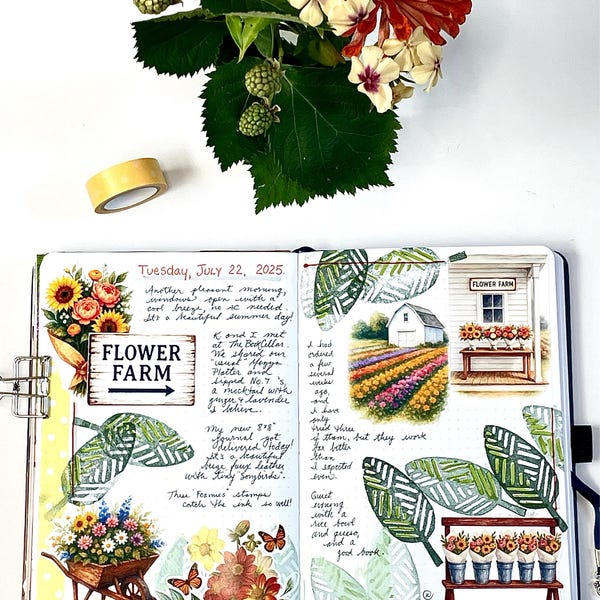 Tuesday, July 22, 2025.
Another pleasant morning,
windows open with a
cool breeze, no AC needed.
It's a beautiful summer day!
FLOWER
FARM
K and I met
at The BoxCellar.
We shared our
usual Mezza
Platter and
sipped No. 7's,
a mocktail with
ginger & lavender
I believe.
My new 8"x8"
journal got
delivered today!
It's a beautiful
beige faux leather
with tiny songbirds.
These Foamies' stamps
catch the ink so well!
I had
ordered
a few
several
weeks
ago,
and
I have
only
tried three
of them, but they work
far better
than
I expected
even.
Quiet
evening
with a
rice bowl
and queso,
and a
good book.
FLOWER FARM